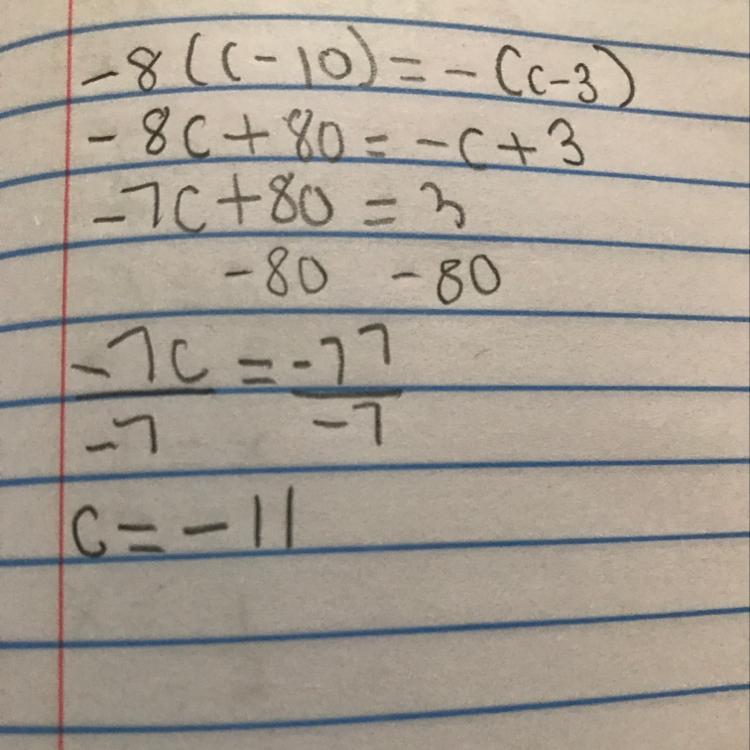 -8(c-10)=-(c-3)
-8c+80=-c+3
-7c+80=3
-80 -80
-7c=-77
-7 -7
c=-11